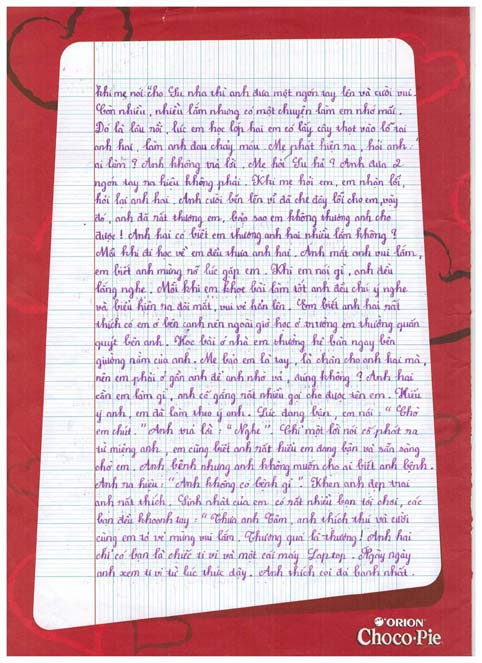 khi mẹ nói cho Su nha thì anh đưa một ngón tay lên và cười vui.
Còn nhiều, nhiều lắm nhưng có một chuyện làm em nhớ mãi.
Đó là lâu rồi, lúc em học lớp hai em có lấy cây thọt vào lỗ tai
anh hai, làm anh đau chảy máu. Mẹ phát hiện ra, hỏi anh:
ai làm? Anh không trả lời. Mẹ hỏi Su hả? Anh đưa 2
ngón tay ra hiệu không phải. Khi mẹ hỏi em, em nhận lỗi,
hỏi lại anh hai. Anh cười bẽn lẽn vì đã che đậy lỗi cho em, vậy
đó, anh đã rất thương em, bảo sao em không thương anh cho
được! Anh hai có biết em thương anh hai nhiều lắm không?
Mỗi khi đi học về em đều thưa anh hai. Ánh mắt anh vui lắm,
em biết anh mừng rỡ lúc gặp em. Khi em nói gì, anh đều
lắng nghe. Mỗi khi em khoe bài làm tốt anh đều chú ý nghe
và biểu hiện ra đôi mắt, vui vẻ hẳn lên. Em biết anh hai rất
thích có em ở bên cạnh nên ngoài giờ học ở trường em thường quấn
quýt bên anh. Học bài ở nhà em thường kê bàn ngay bên
giường nằm của anh. Mẹ bảo em là tay, là chân cho anh hai mà,
nên em phải ở gần anh để anh nhờ vả, đúng không? Anh hai
cần em làm gì, anh cố gắng rất nhiều gọi cho được tên em. Hiểu
ý anh, em đã làm theo ý anh. Lúc đang bận, em nói: "Chờ
em chút." Anh trả lời: "Nghe". Chỉ một lời nói cố phát ra
từ miệng anh, em cũng biết anh rất hiểu em đang bận và sẵn sàng
chờ em. Anh bệnh nhưng anh không muốn cho ai biết anh bệnh.
Anh ra hiệu: "Anh không có bệnh gì". Khen anh đẹp trai
anh rất thích. Sinh nhật của em có rất nhiều bạn tới chơi, các
bạn đều khoanh tay: "Thưa anh Tâm, anh thích thú và cười
cùng em tỏ vẻ mừng vui lắm. Thương quá là thương! Anh hai
chỉ có bạn là chiếc ti vi và một cái máy Laptop. Ngày ngày
anh xem ti vi từ lúc thức dậy. Anh thích coi đá banh nhất.
ORION
Choco·Pie